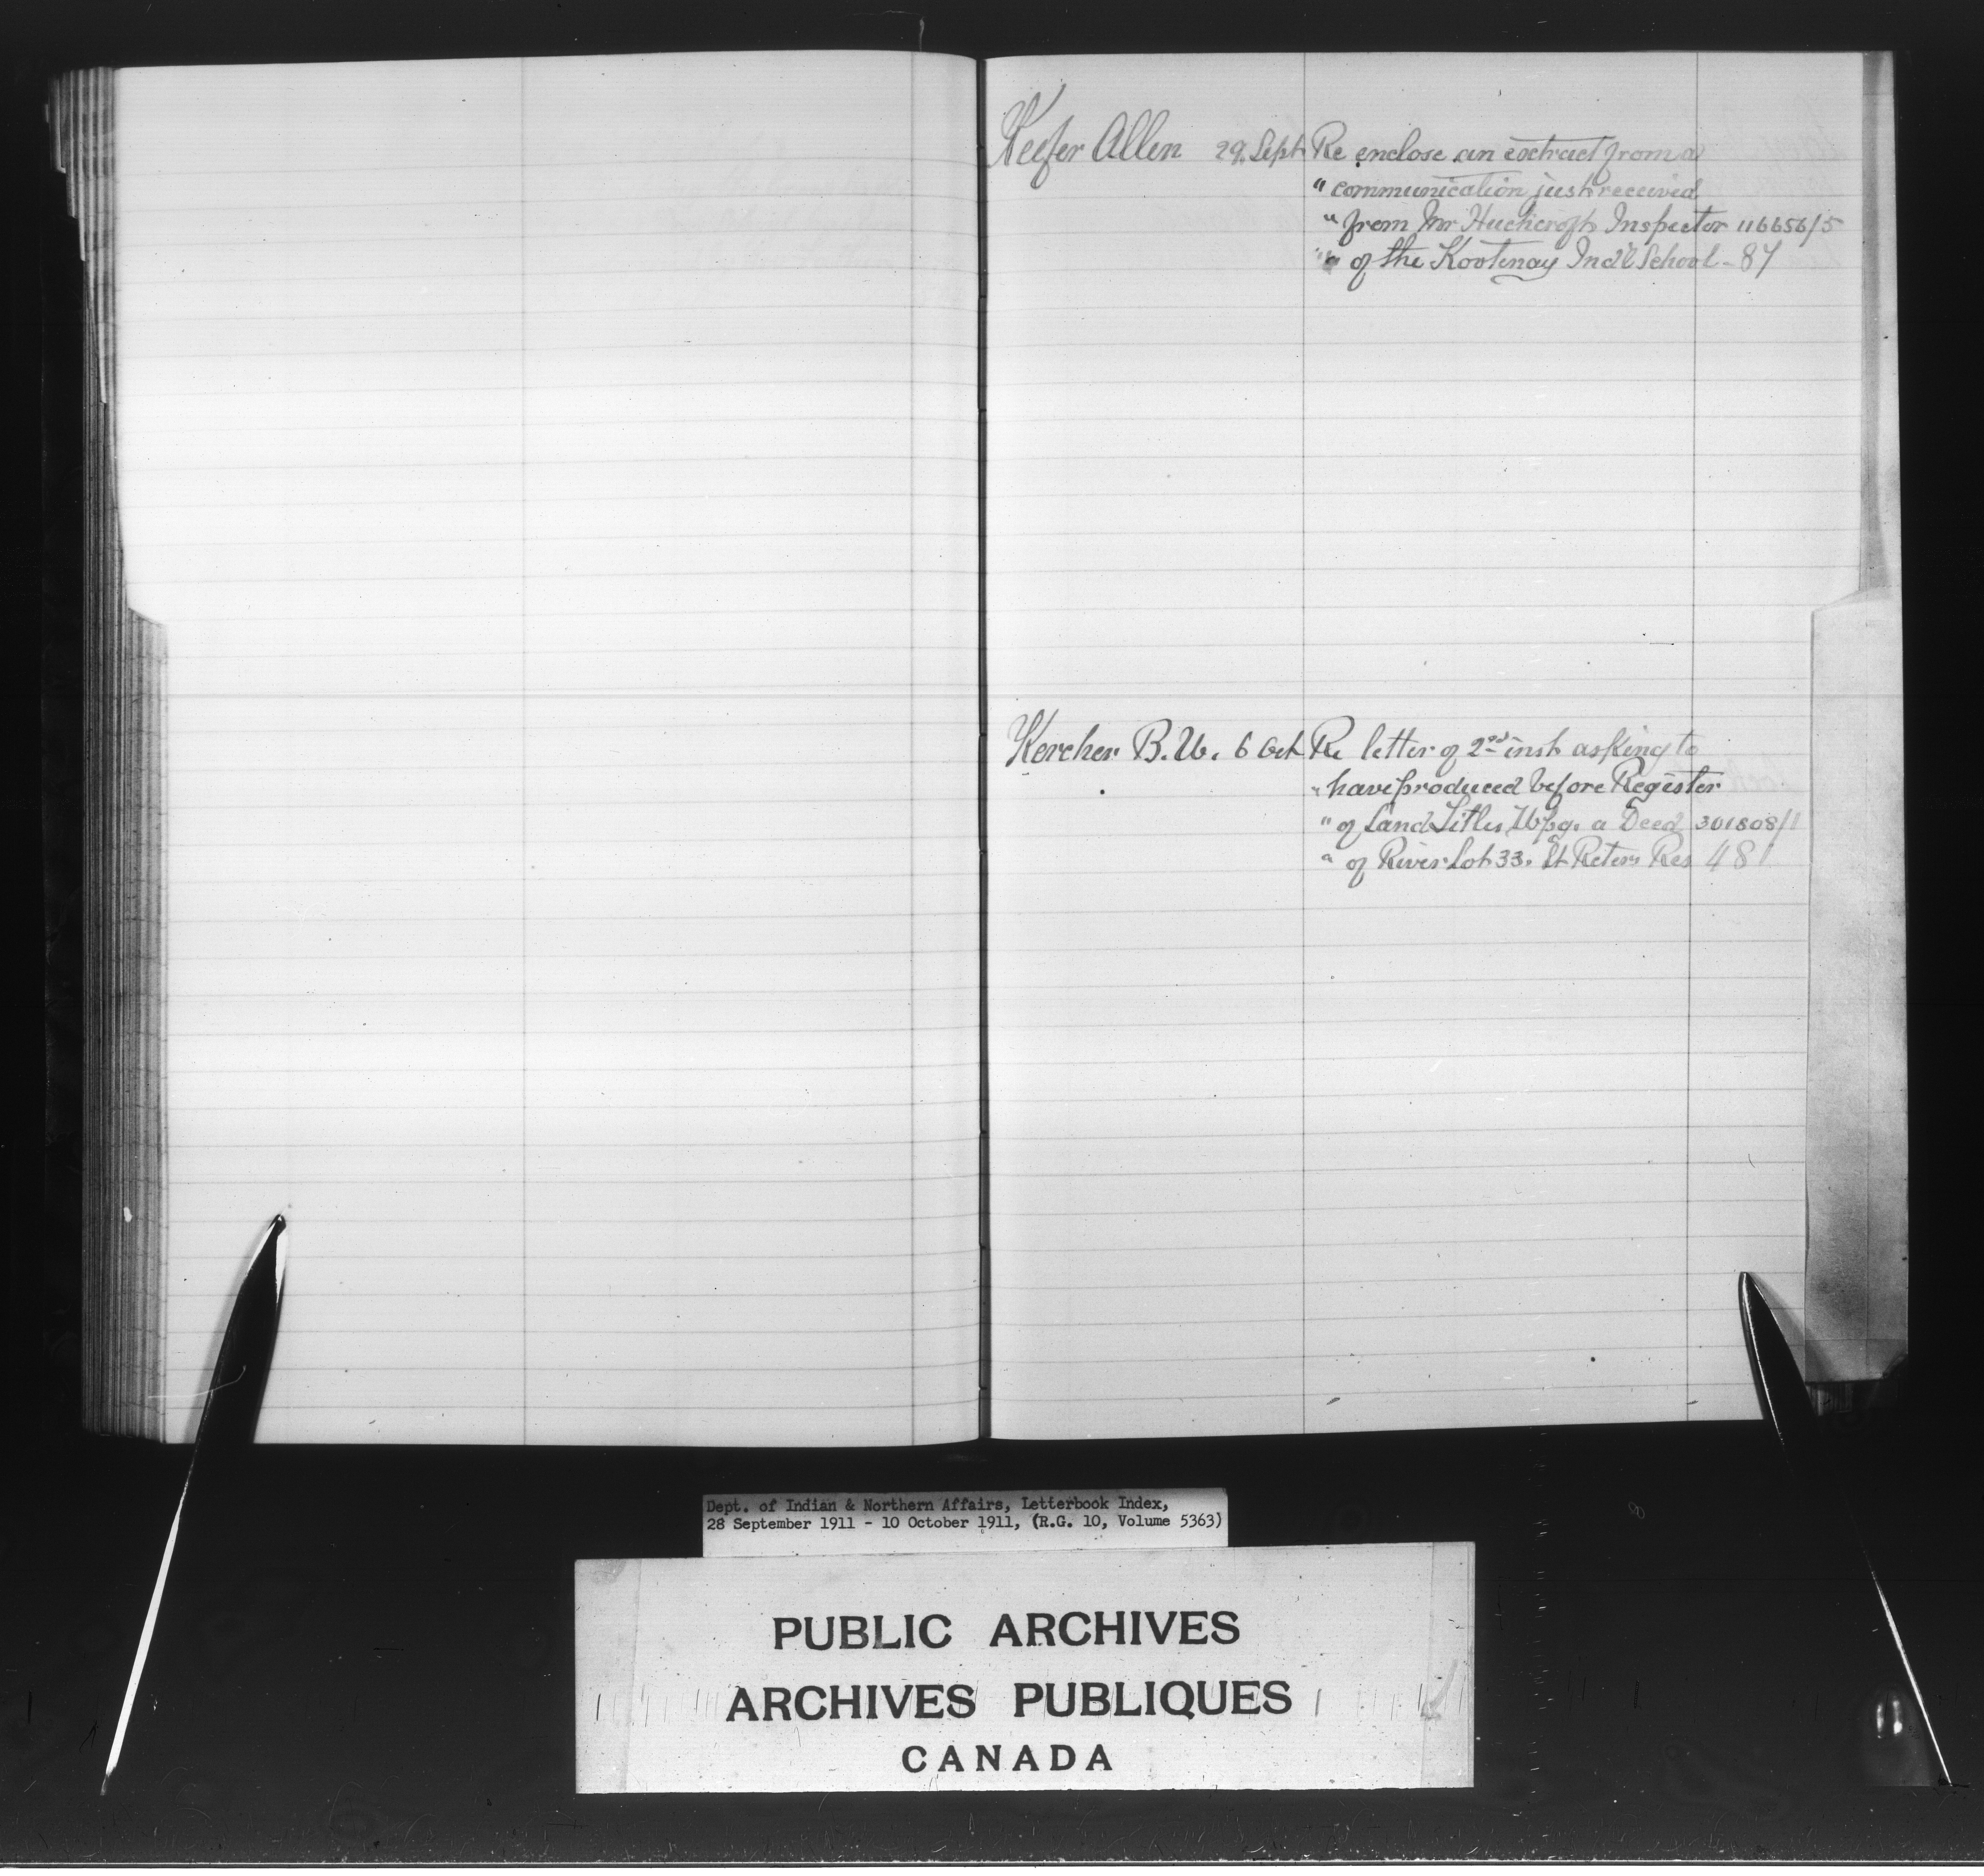 Keefer Allen 29, Sept Re enclose an extract from a
" communication just received
" from Mr Huchcroft Inspector 116656/5
" of the Kootenay Ind'l School - 87
Kercher B.W. 6 Oct Re letter of 2nd inst asking to
" have produced before Register
" of Land Titles Wpg. a Deed 301808/1
" of River Lot 33. St Peters Res 481
Dept. of Indian & Northern Affairs, Letterbook Index,
28 September 1911 - 10 October 1911, (R.G. 10, Volume 5363)
PUBLIC ARCHIVES
ARCHIVES PUBLIQUES
CANADA